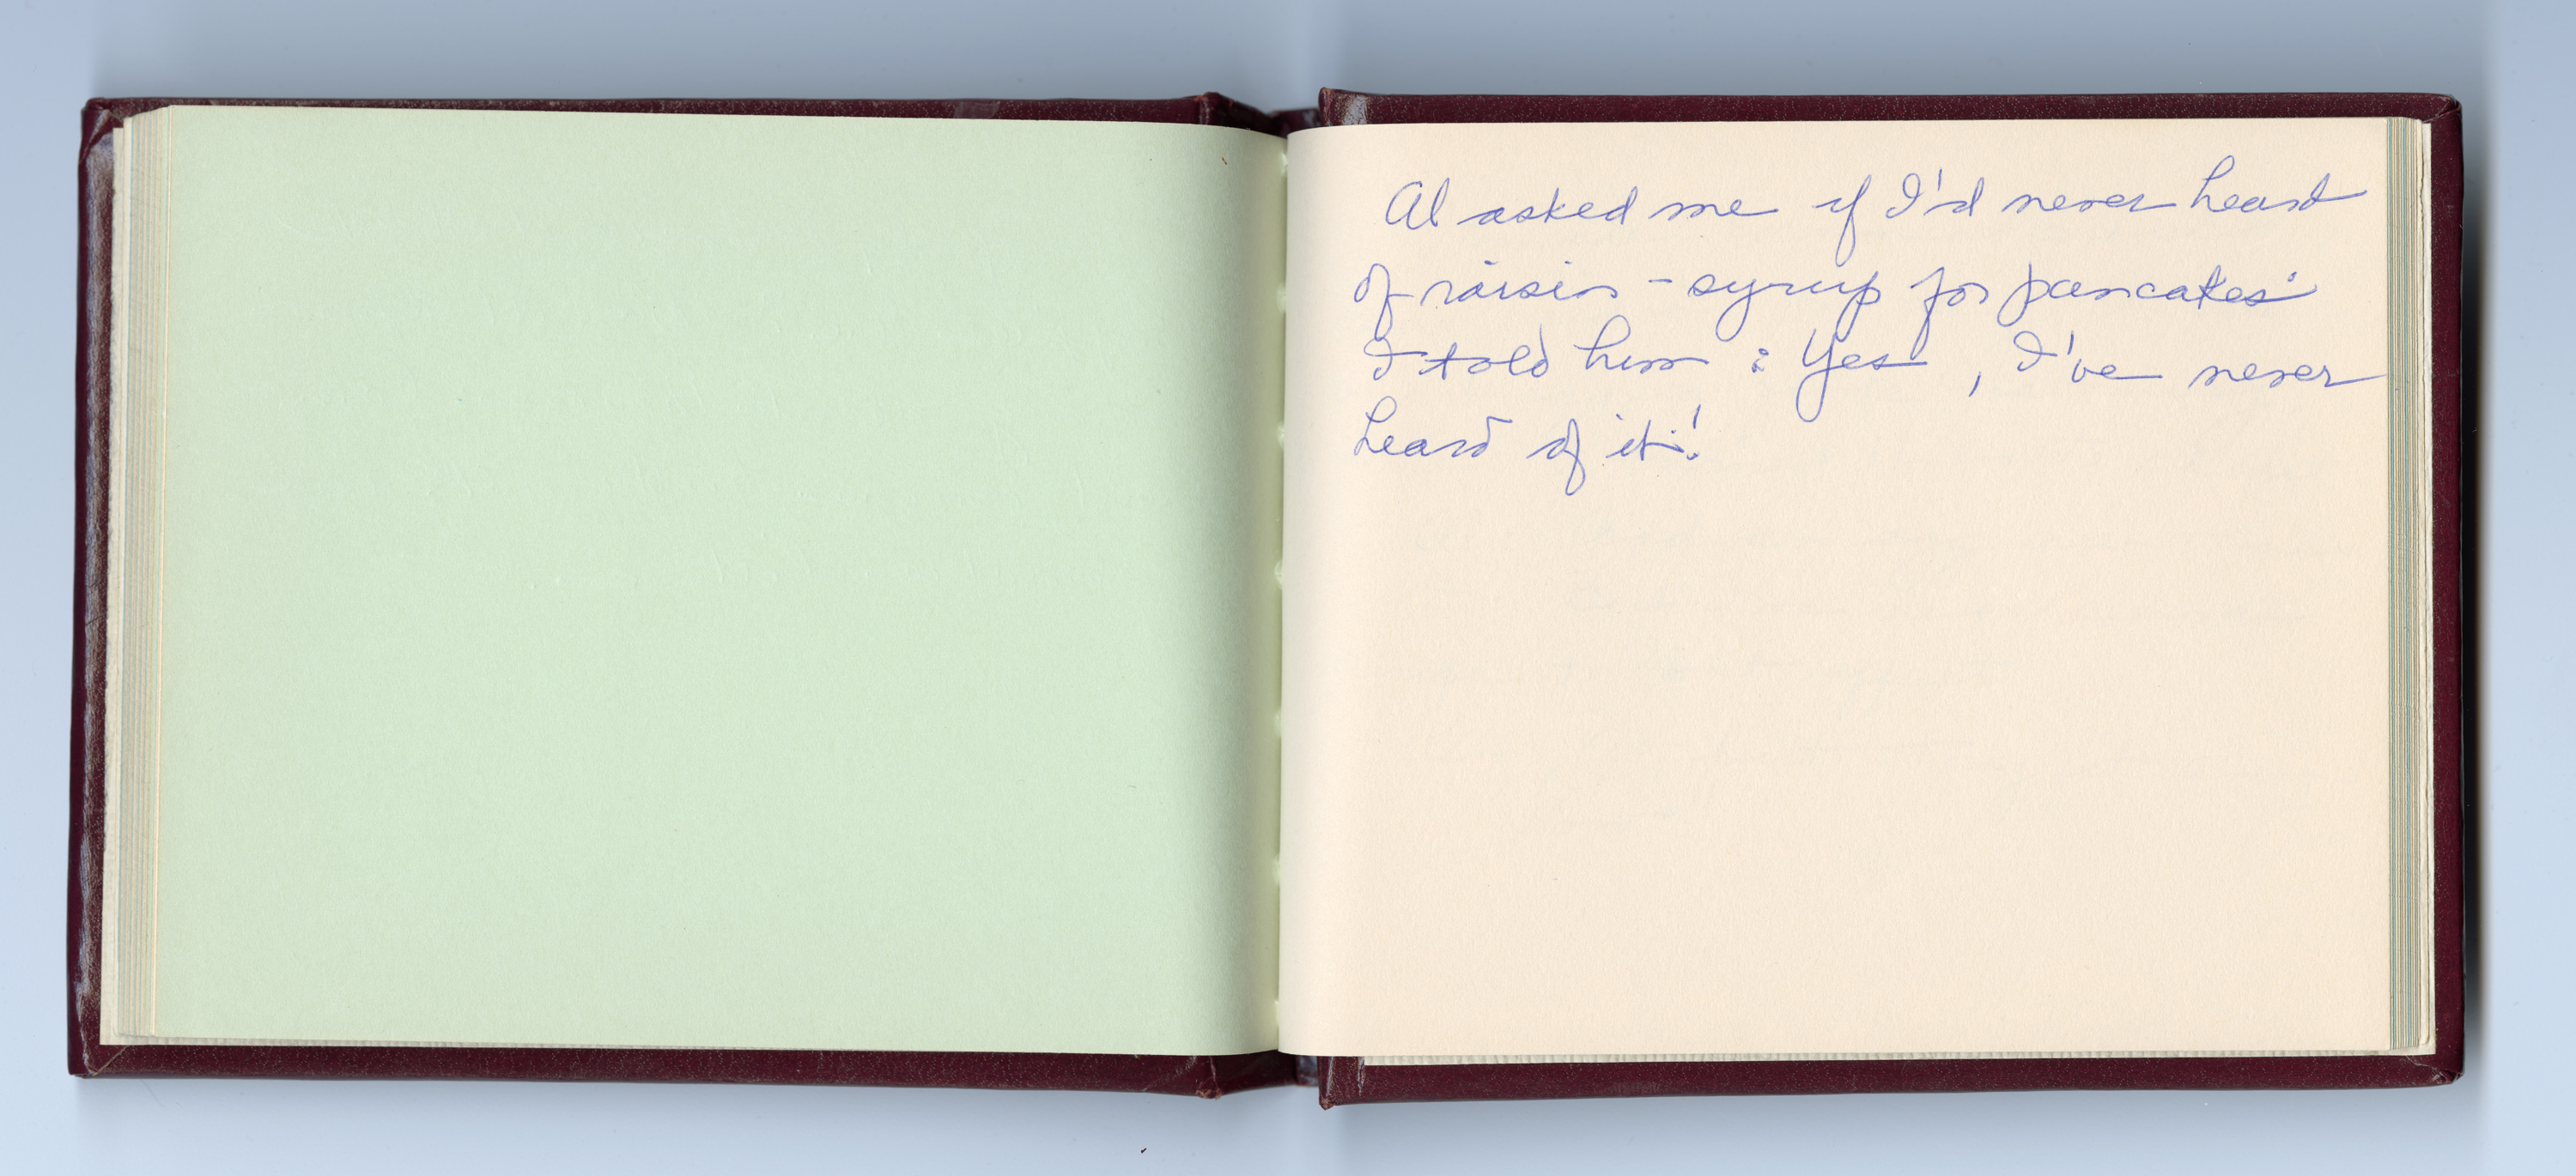 Al asked me if I'd never heard
of raisin - syrup for pancakes
I told him : Yes , I've never
heard of it!